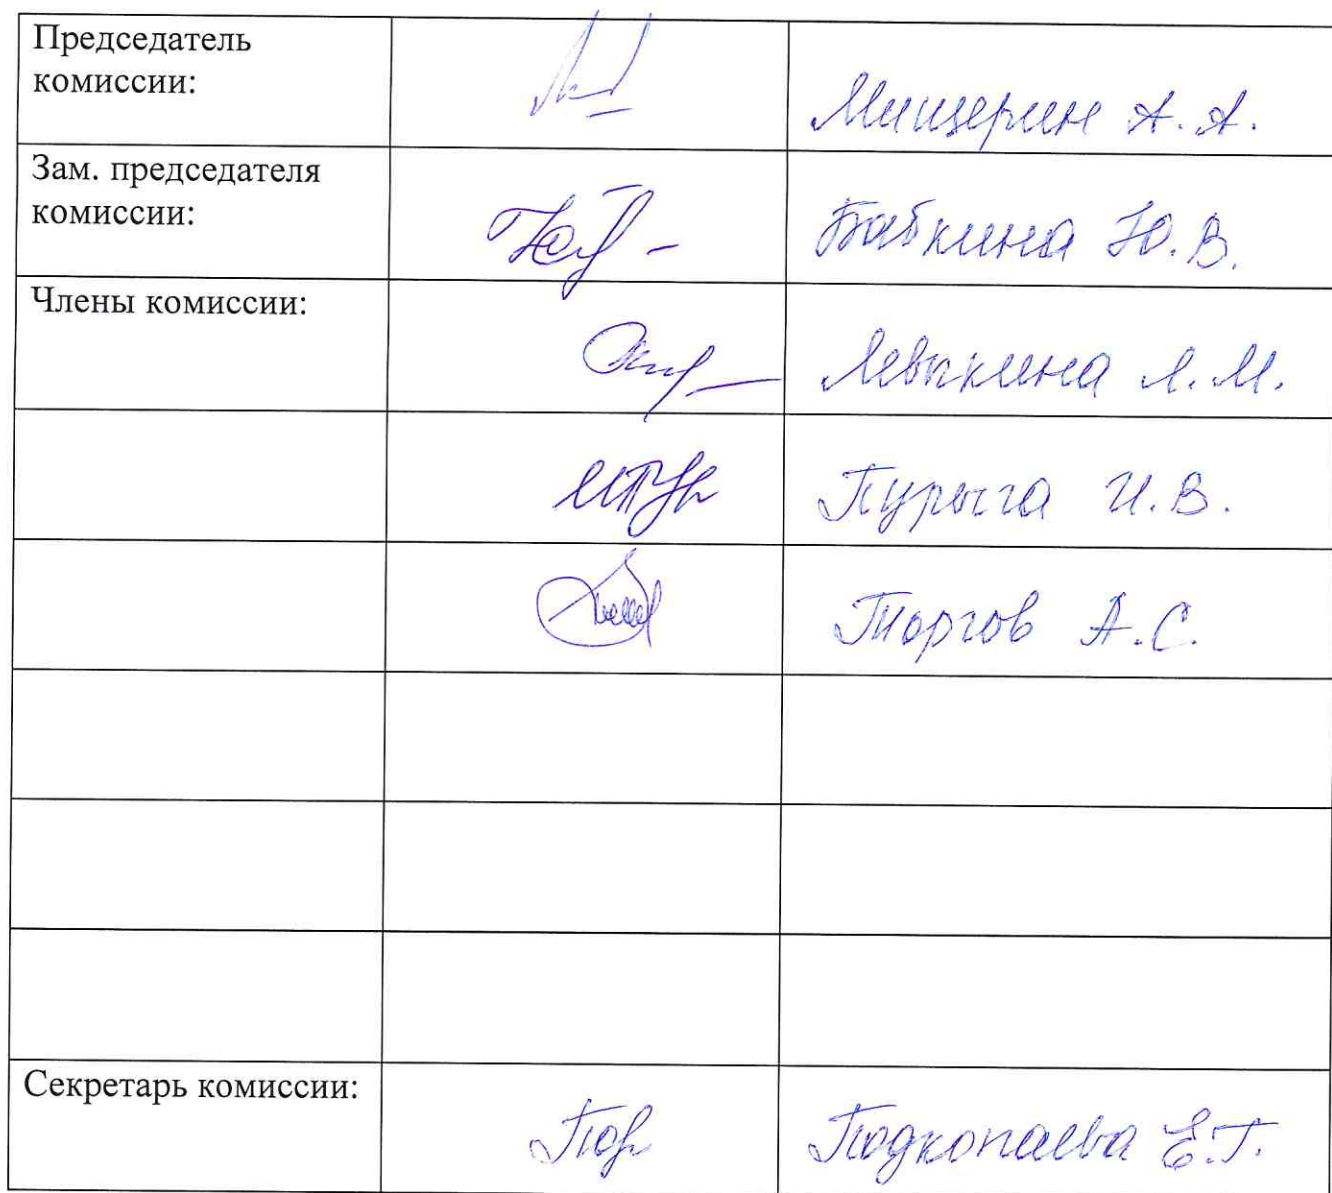 Председатель
комиссии:
Мищерин А. А.
Зам. председателя
комиссии:
Бабкина Ю. В.
Члены комиссии:
Левыкина Л. М.
Пурыга И. В.
Торгов А. С.
Секретарь комиссии:
Подкопаева Е. Г.